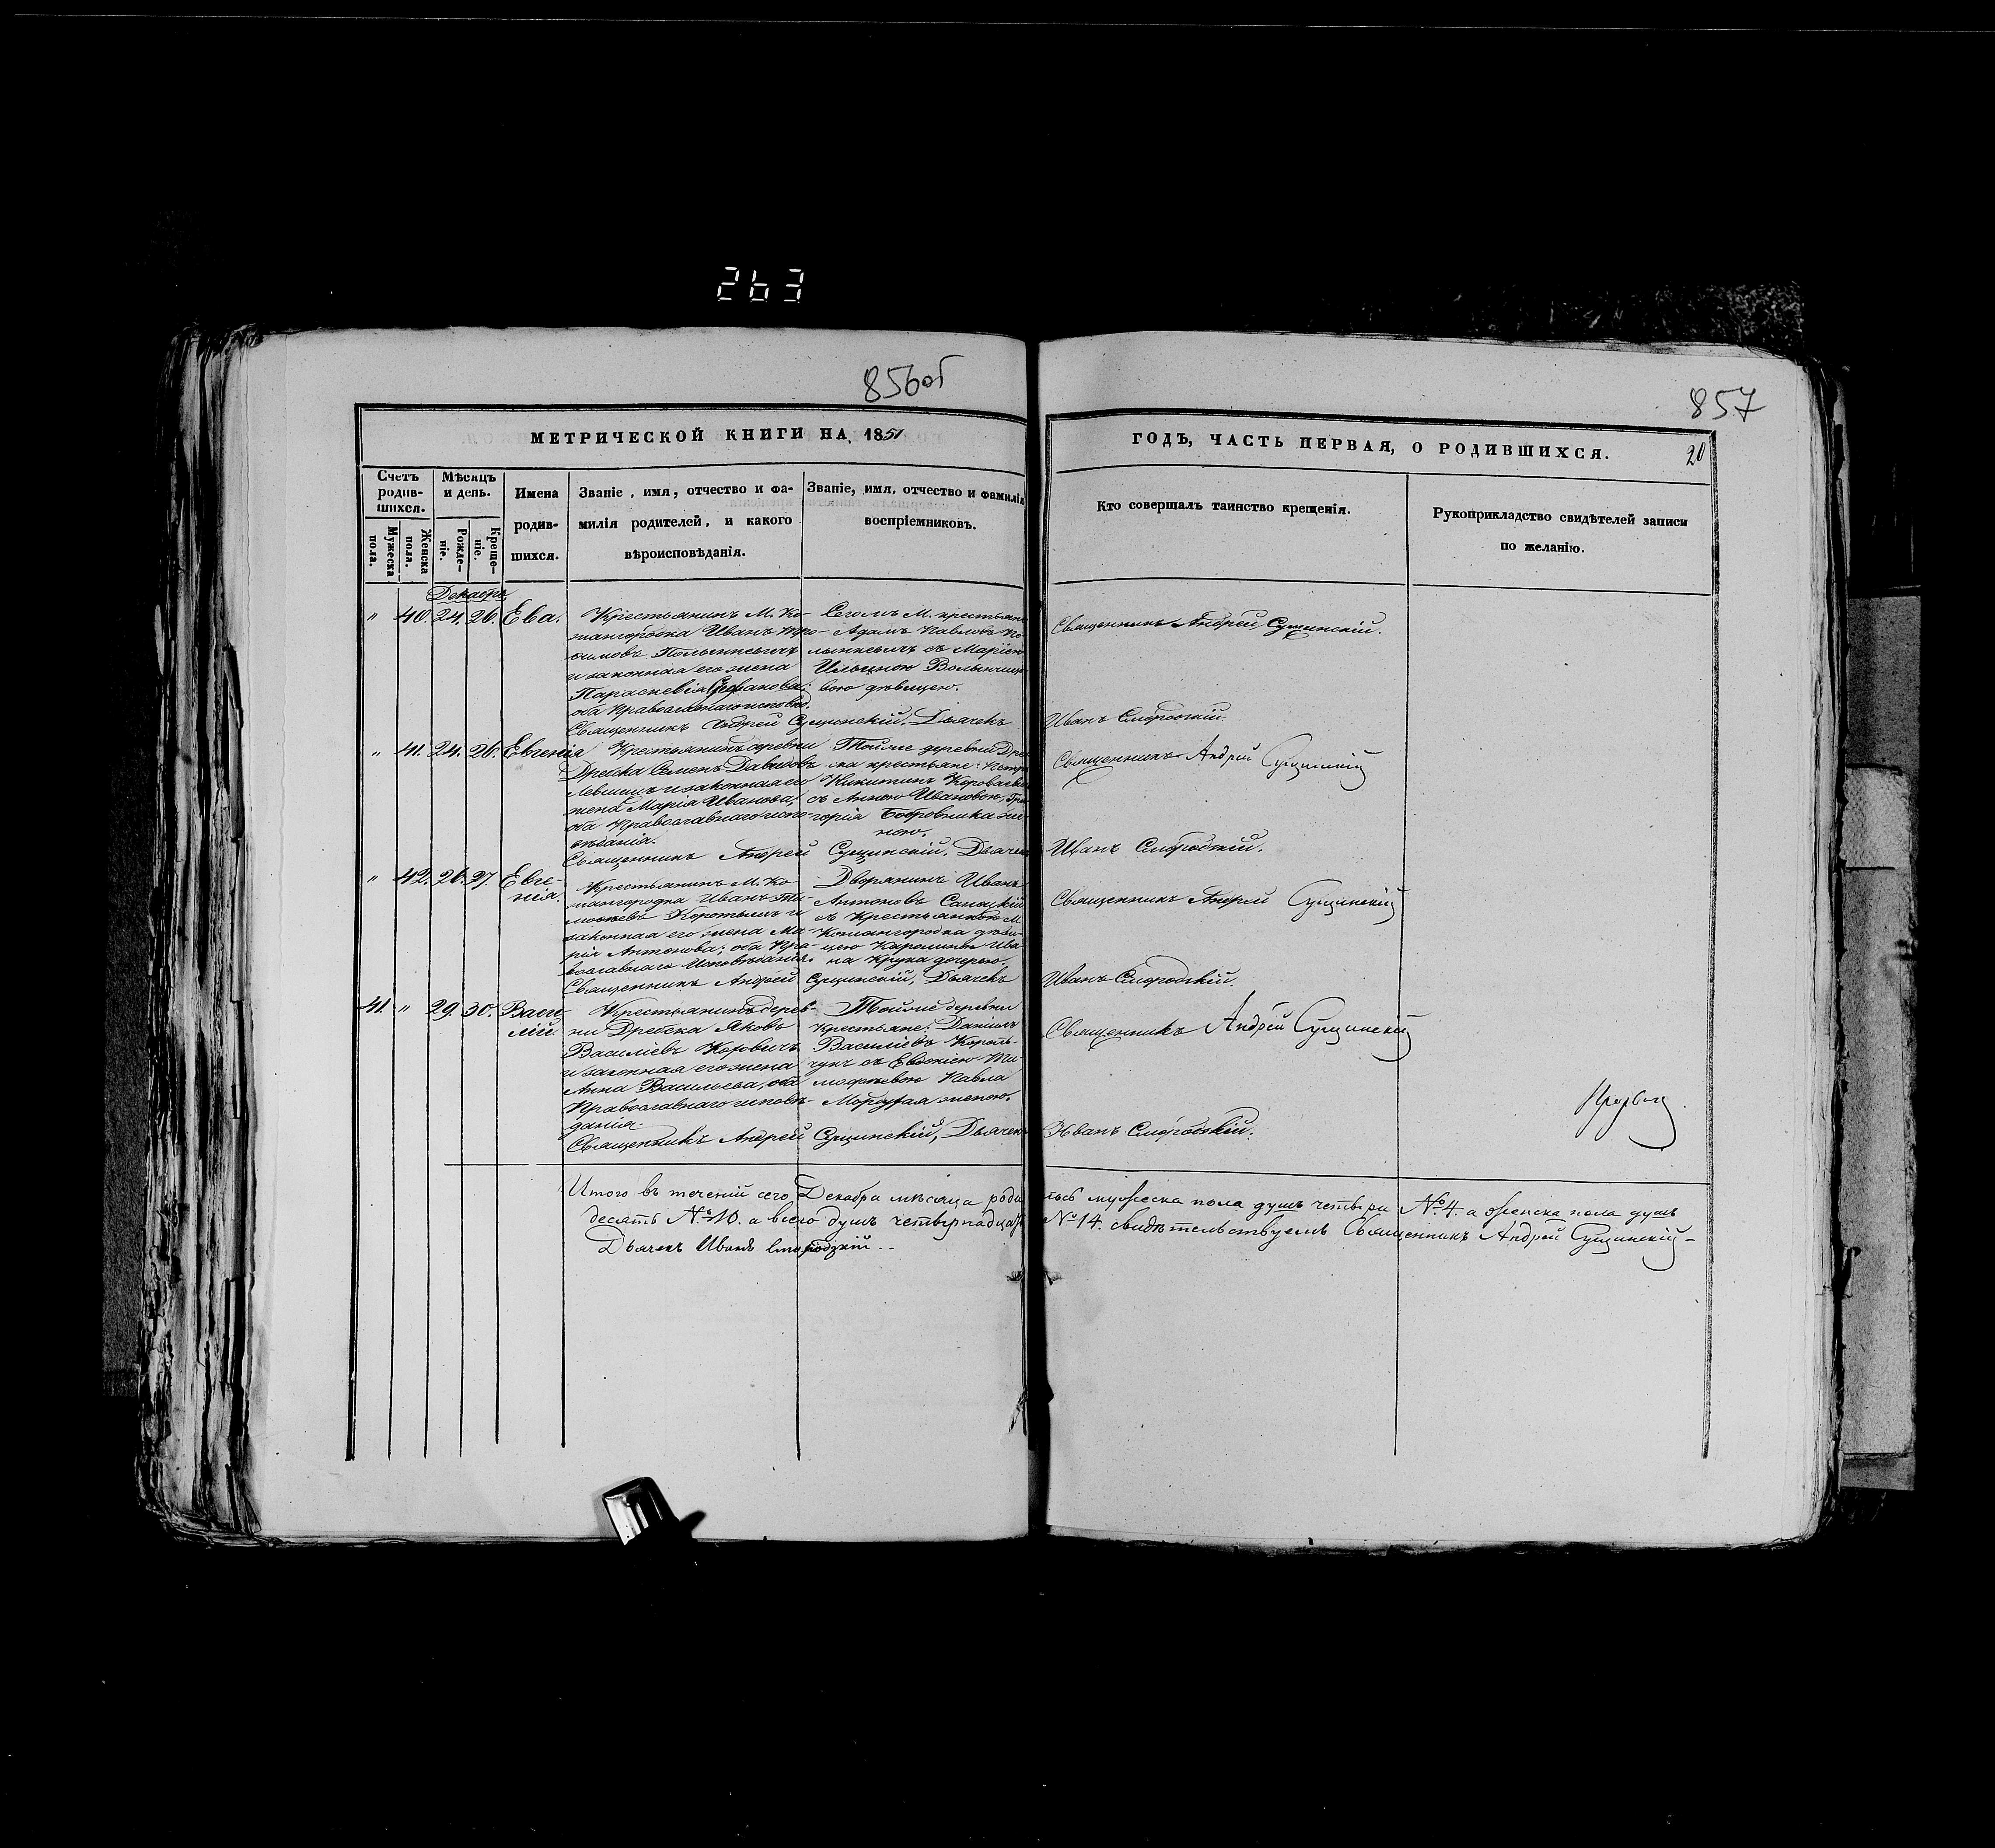 263
856об
857
МЕТРИЧЕСКОЙ КНИГИ НА 1851
ГОДЪ, ЧАСТЬ ПЕРВАЯ, О РОДИВШИХСЯ.
20
Счетъ родив-шихся.
Мѣсяцъ и день.
Мужеска пола.
Женска пола.
Рожде-ніе.
Креще-ніе.
Имена
родив-
шихся.
Званіе, имя, отчество и фа-
милія родителей, и какого
вѣроисповѣданія.
Званіе, имя, отчество и фамилія
воспріемниковъ.
Кто совершалъ таинство крещенія.
Рукоприкладство свидѣтелей записи
по желанію.
Декабрь
" 40. 24. 26. Ева.
Крестьянинъ М. Ко-
жангородка Иванъ
и законная его жена
Параскевія
оба Православнаго
Священникъ Андрей Сущинскій. Дьячекъ
Адамъ Павловъ
съ Маріею
Ильиною
вою дѣвицею.
Священникъ Андрей Сущинскій.
Иванъ Смородскій.
" 41. 24. 26. Евгенія
Крестьянинъ деревни
Дребска Семенъ Давидовъ
Левшикъ и законная его
жена Марія Ивановна,
оба Православнаго испо-
вѣданія.
Священникъ Андрей Сущинскій. Дьячекъ
Тойже деревни
ска крестьяне: Петръ
Никитинъ
съ Анною Ивановою, Гри-
горія Бобровника же-
ною.
Священникъ Андрей Сущинскій
Иванъ Смородскій.
" 42. 26. 27. Евге-
нія.
Крестьянинъ М. Ко-
жангородка Иванъ Ти-
моѳеевъ Коротышъ и
законная его жена Ма-
рія Антонова; оба Пра-
вославнаго Исповѣданія.
Священникъ Андрей Сущинскій, Дьячекъ
Дворянинъ Иванъ
Антоновъ
съ Крестьянкою М.
Кожангородка дѣви-
цею Каролиною Ива-
на Крука дочерью.
Священникъ Андрей Сущинскій
Иванъ Смородскій.
41. " 29. 30. Васи-
лій.
Крестьянинъ дерев-
ни Дребска Яковъ
Василіевъ Каровичъ
и законная его жена
Анна Васильева, оба
Православнаго исповѣ-
данія.
Священникъ Андрей Сущинскій, Дьячекъ
Тойже деревни
крестьяне: Даніилъ
Василіевъ Король-
чукъ съ Евдокіею Ти-
моѳеевою Павла
женою.
Священникъ Андрей Сущинскій
Иванъ Смородскій.
Итого въ теченій сего Декабра мѣсяца роди лось мужеска пола душъ четыри №4. а женска пола душъ
десять №10. а всего душъ четырнадцать №14. свидѣтельствуемъ Священникъ Андрей Сущинскій
Дьячекъ Иванъ Смородзкій.